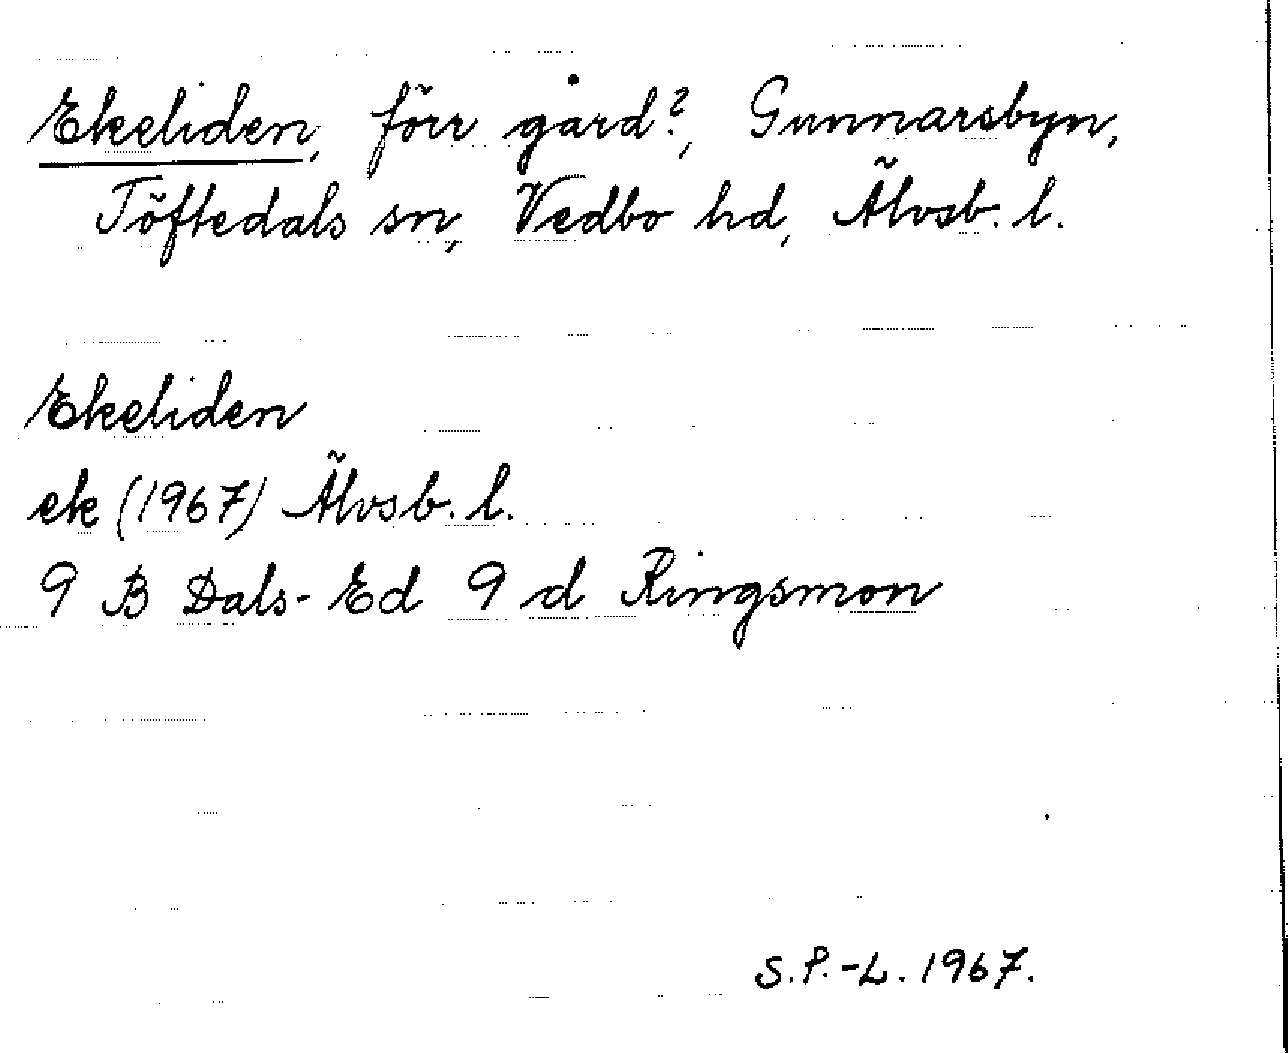 Ekeliden, förr gård?, Gunnarsbyn,
Töftedals sn, Vedbo hd, Älvsb. l.
Ekeliden
ek (1967) Älvsb. l.
9 B Dals-Ed 9 d Ringsmon
S.P.-L. 1967.